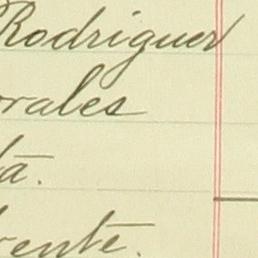 Rodriguez
orales
ta.
rente.